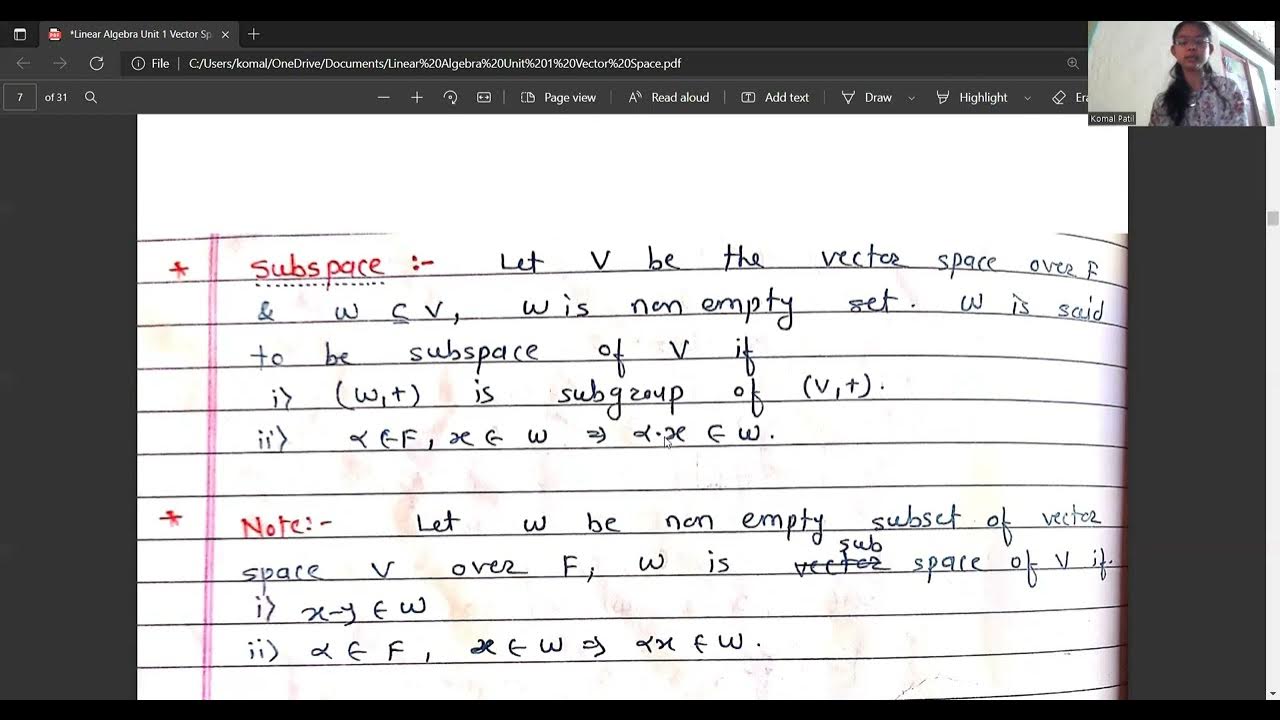 *Linear Algebra Unit 1 Vector Sp
File C:/Users/komal/OneDrive/Documents/Linear%20Algebra%20Unit%201%20Vector%20Space.pdf
7 of 31 Page view Read aloud Add text Draw Highlight Era
Komal Patil
* Subspace :- Let V be the vector space over F
& W ⊆ V, W is non empty set. W is said
to be subspace of V if
i) (W,+) is subgroup of (V,+).
ii) α ∈ F, x ∈ W ⇒ α·x ∈ W.
* Note:- Let W be non empty subset of vector
sub
space V over F, W is vector space of V if.
i) x-y ∈ W
ii) α ∈ F, x ∈ W ⇒ αx ∈ W.